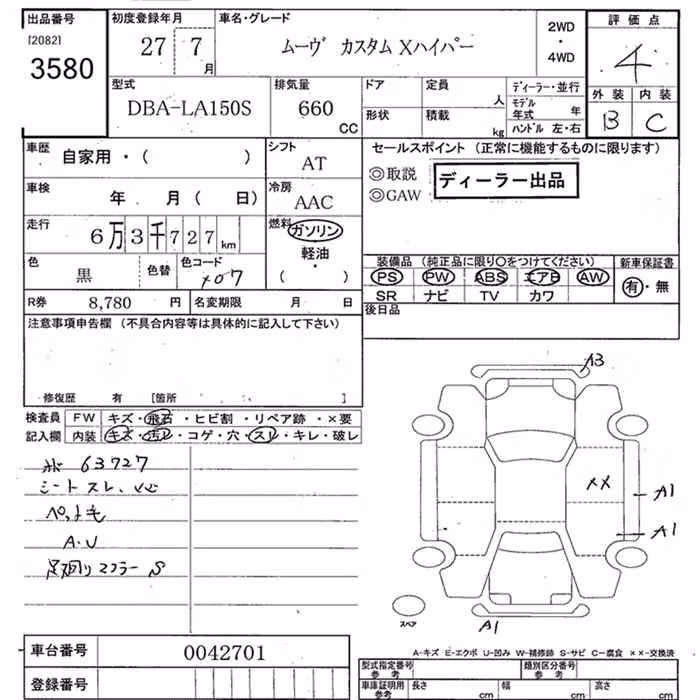 出品番号
[2082]
3580
初度登録年月
27 7 月
車名・グレード
ムーヴ カスタム Xハイパー
2WD
・
4WD
評価点
4
外装 内装
B C
型式
DBA-LA150S
排気量
660 CC
ドア
形状
定員 人
積載 kg
ディーラー・並行
モデル年式 年
ハンドル 左・右
車歴
自家用・( )
シフト
AT
車検
年 月( 日)
冷房
AAC
走行
6万3千727km
燃料
ガソリン
軽油・
( )
色
黒
色替
色コード
X07
R券 8,780 円
名変期限 月 日
セールスポイント (正常に機能するものに限ります)
◎取説
◎GAW
ディーラー出品
装備品 (純正品に限り○をつけてください)
PS PW ABS エアB AW
SR ナビ TV カワ
新車保証書
有・無
後日品
注意事項申告欄 (不具合内容等は具体的に記入して下さい)
修復歴 有 [箇所 ]
検査員
記入欄
FW キズ・飛石・ヒビ割・リペア跡・×要
内装 キズ・汚レ・コゲ・穴・スレ・キレ・破レ
63727
シートスレ、
A.U
足廻りマフラーS
A3
XX
A1
A1
A1
スペア
A-キズ E-エクボ U-凹み W-補修跡 S-サビ C-腐食 ××-交換済
車台番号 0042701
登録番号
型式指定番号 参考
類別区分番号 参考
車庫証明用 参考
長さ cm 幅 cm 高さ cm